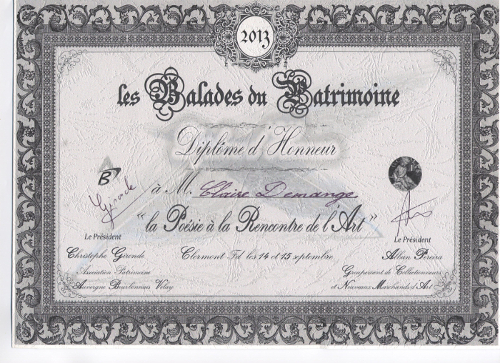 2013
les Balades du Patrimoine
Diplôme d'Honneur
B
Gironde
à M. Claire Demange
"la Poésie à la Rencontre de l'Art"
Le Président
Christophe Gironde
Association Patrimoine
Auvergne Bourbonnais Velay
Clermont Fd les 14 et 15 septembre
Le Président
Alban Pereira
Groupement de Collectionneurs
et Nouveaux Marchands d'Art